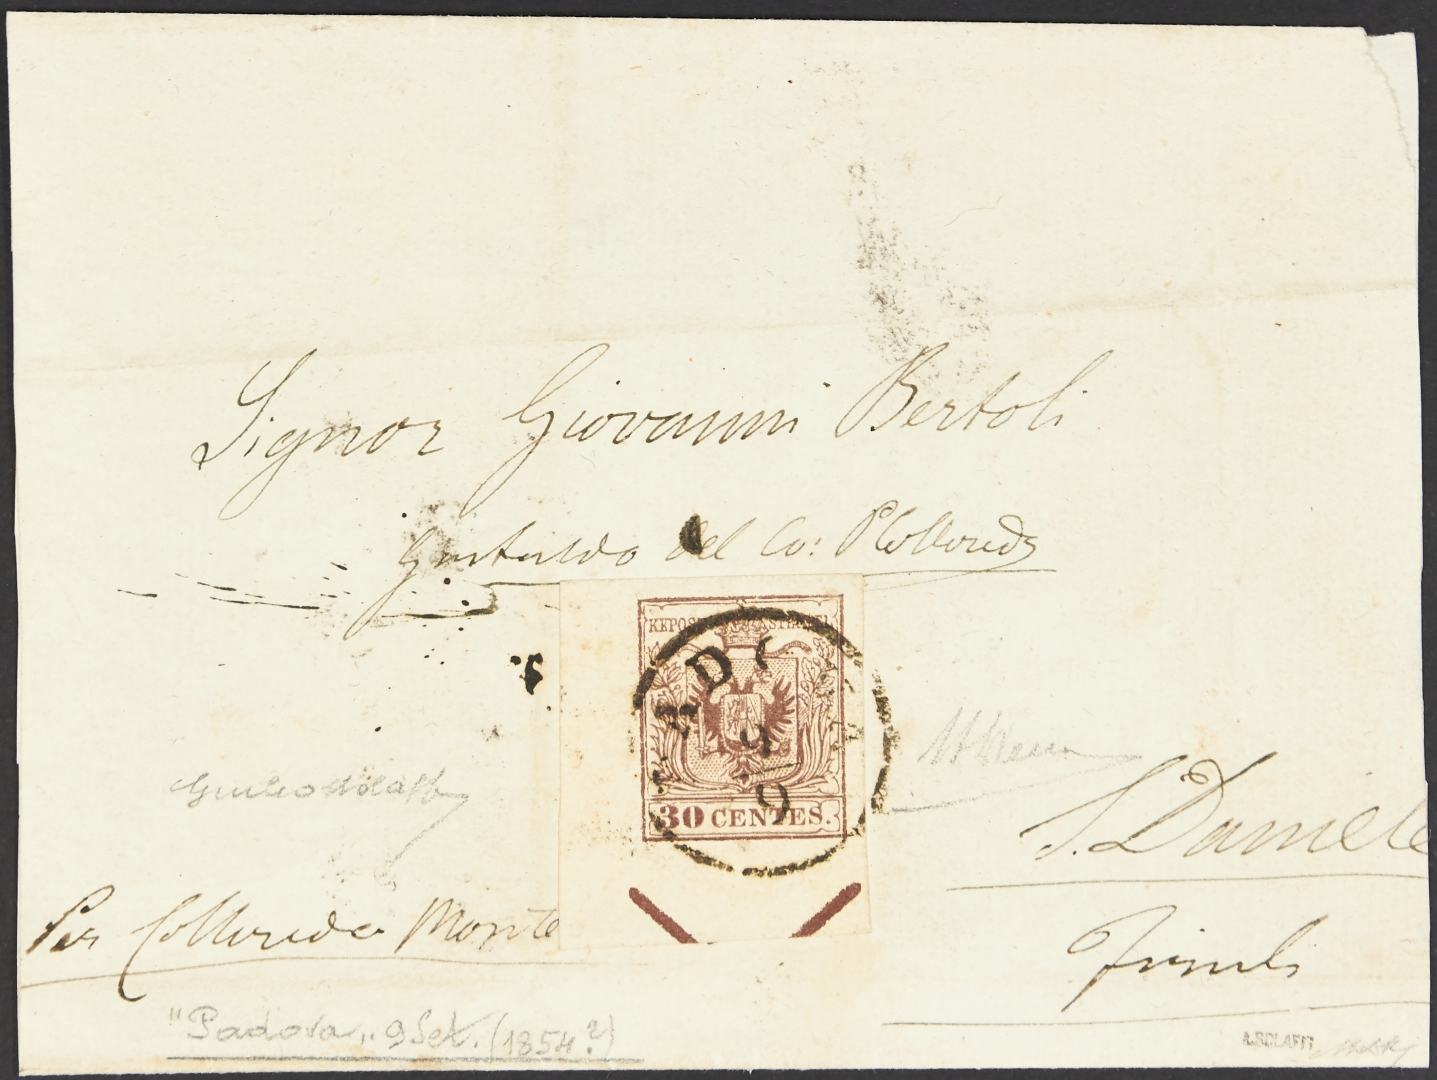 Signor Giovanni Bertoli
Gastaldo del Co: P Colloredo
30 CENTES.
9
9
S. Daniele
Per Colloredo Monte
Friuli
"Padova„ 9 Set. (1854?)
A. BOLAFFI